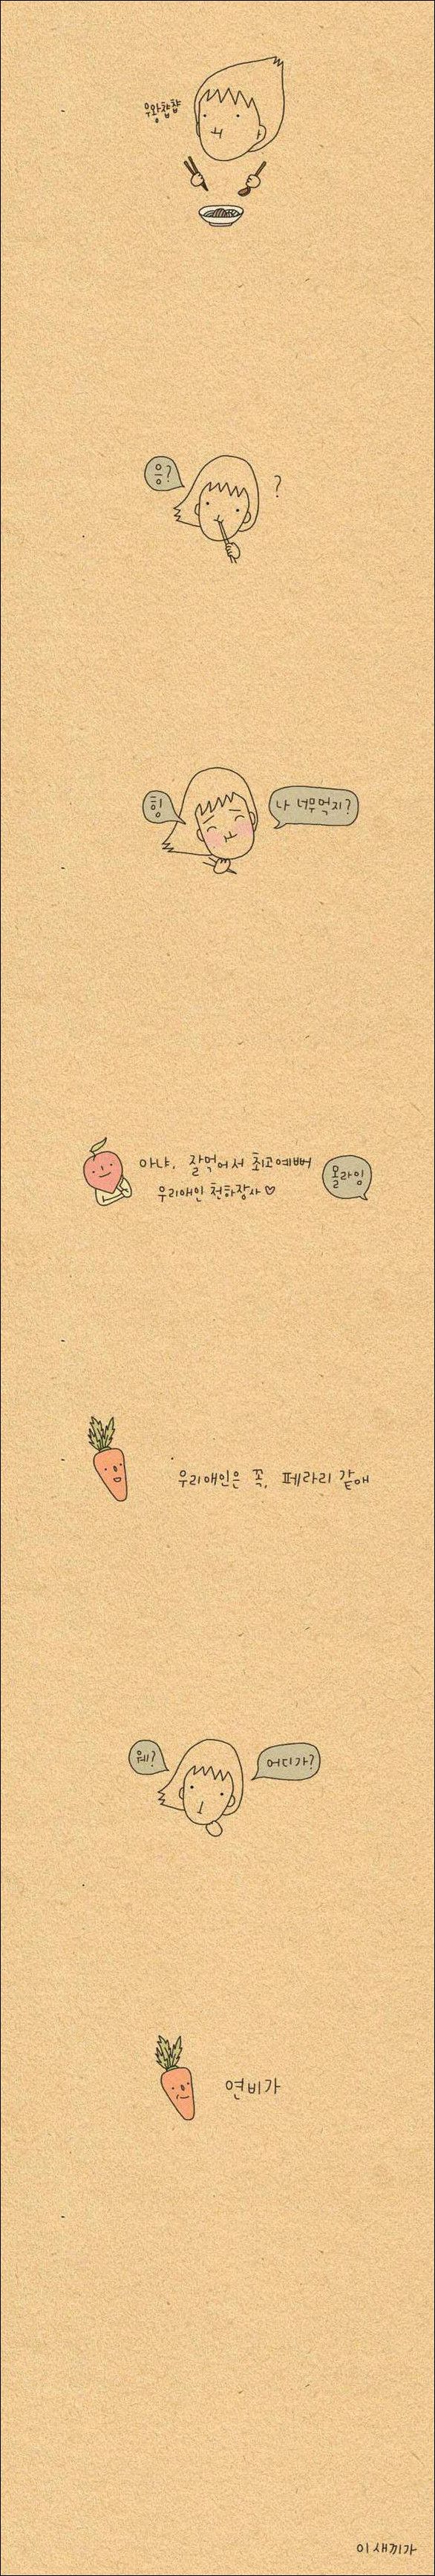 우왕챱챱
응?
?
힝
나 너무먹지?
아냐, 잘먹어서 최고예뻐
우리애인 천하장사♡
몰라잉
우리애인은 꼭, 페라리 같애
웨?
어디가?
연비가
이 새끼가